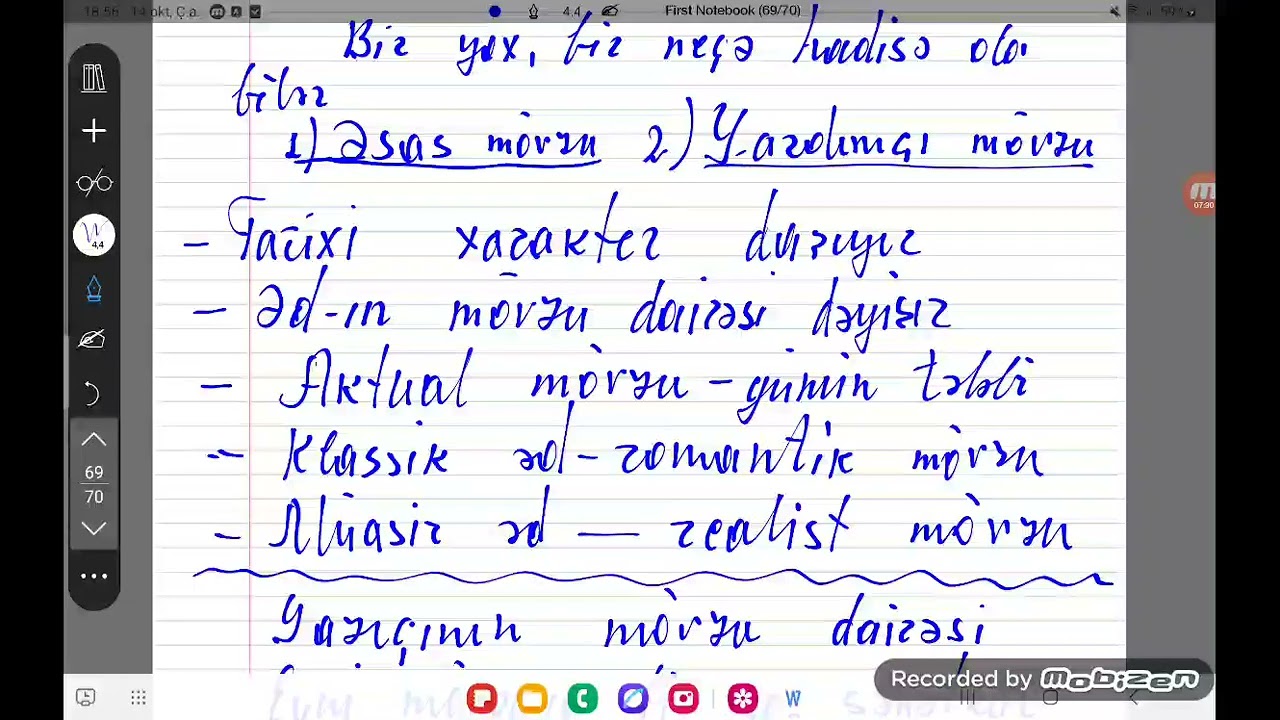 18:56 14 okt, Ç.a.
4.4
First Notebook (69/70)
Bir yox, bir neçə hadisə ola
bilər
1) Əsas mövzu 2) Yardımçı mövzu
- Tarixi xarakter daşıyır
- Əd-ın mövzu dairəsi dəyişir
- Aktual mövzu - günün tələbi
- Klassik əd - romantik mövzu
- Müasir əd — realist mövzu
Yazıçının mövzu dairəsi
4.4
69
70
07:30
Recorded by mobizen